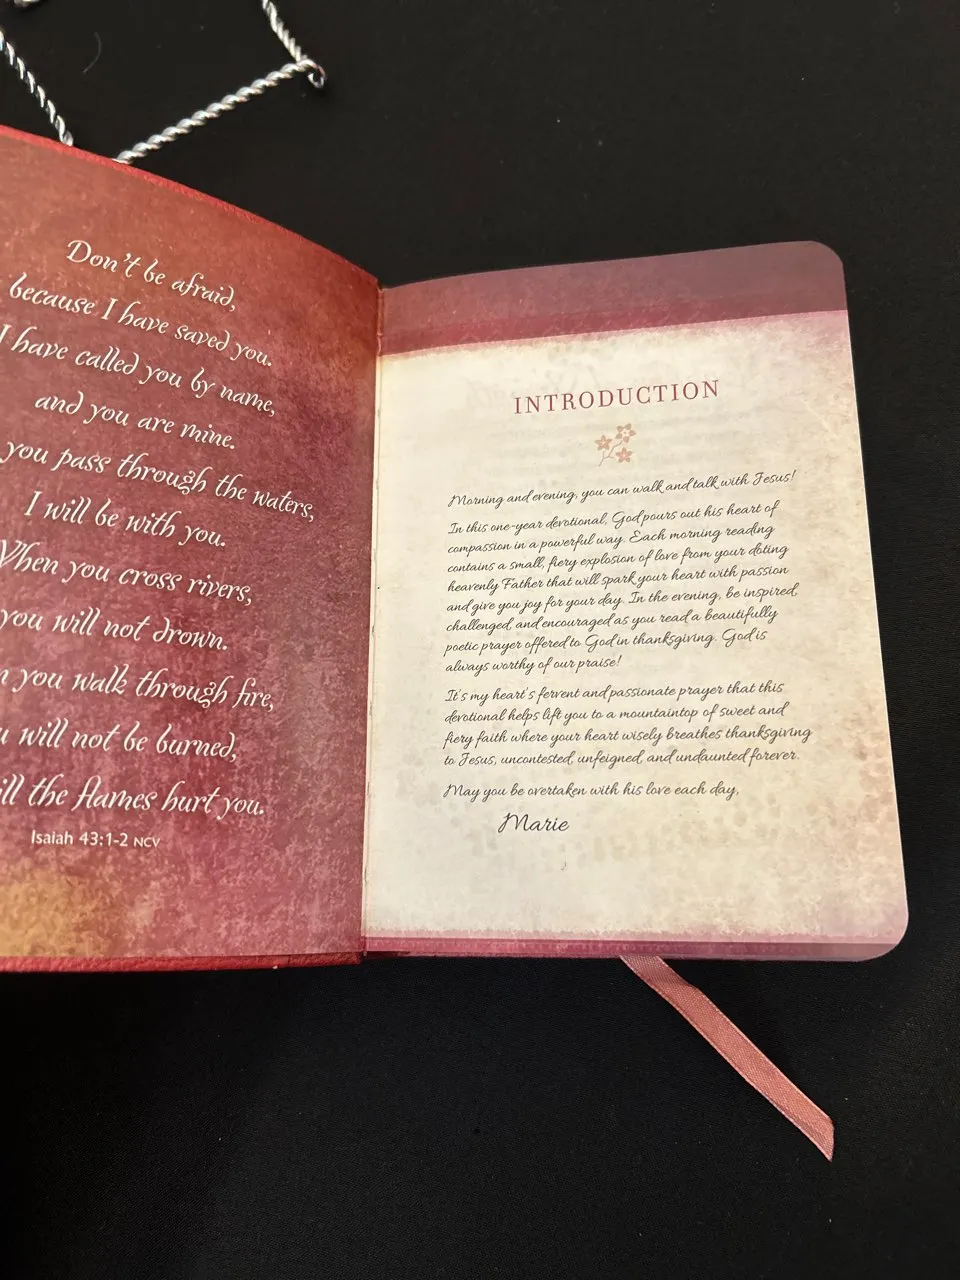 Don't be afraid,
because I have saved you.
I have called you by name,
and you are mine.
you pass through the waters,
I will be with you.
When you cross rivers,
you will not drown.
you walk through fire,
will not be burned,
the flames hurt you.
Isaiah 43:1-2 NCV
INTRODUCTION
Morning and evening, you can walk and talk with Jesus!
In this one-year devotional, God pours out his heart of
compassion in a powerful way. Each morning reading
contains a small, fiery explosion of love from your doting
heavenly Father that will spark your heart with passion
and give you joy for your day. In the evening, be inspired,
challenged, and encouraged as you read a beautifully
poetic prayer offered to God in thanksgiving. God is
always worthy of our praise!
It's my heart's fervent and passionate prayer that this
devotional helps lift you to a mountaintop of sweet and
fiery faith where your heart wisely breathes thanksgiving
to Jesus, uncontested, unfeigned, and undaunted forever.
May you be overtaken with his love each day,
Marie